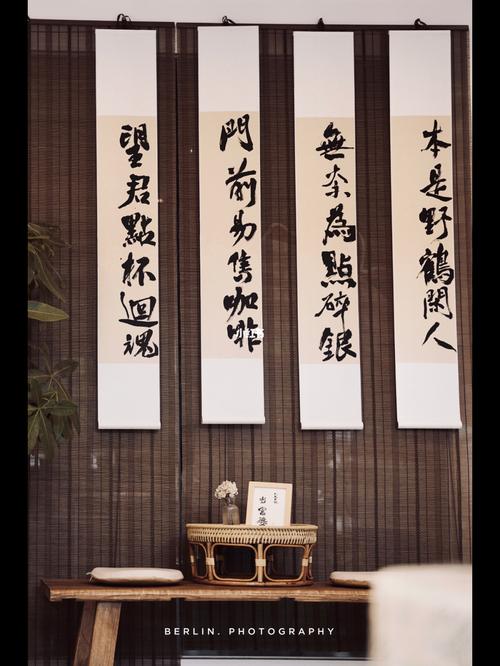 本是野鶴閑人
無奈為點碎銀
門前易售咖啡
望君點杯迴魂
BERLIN. PHOTOGRAPHY